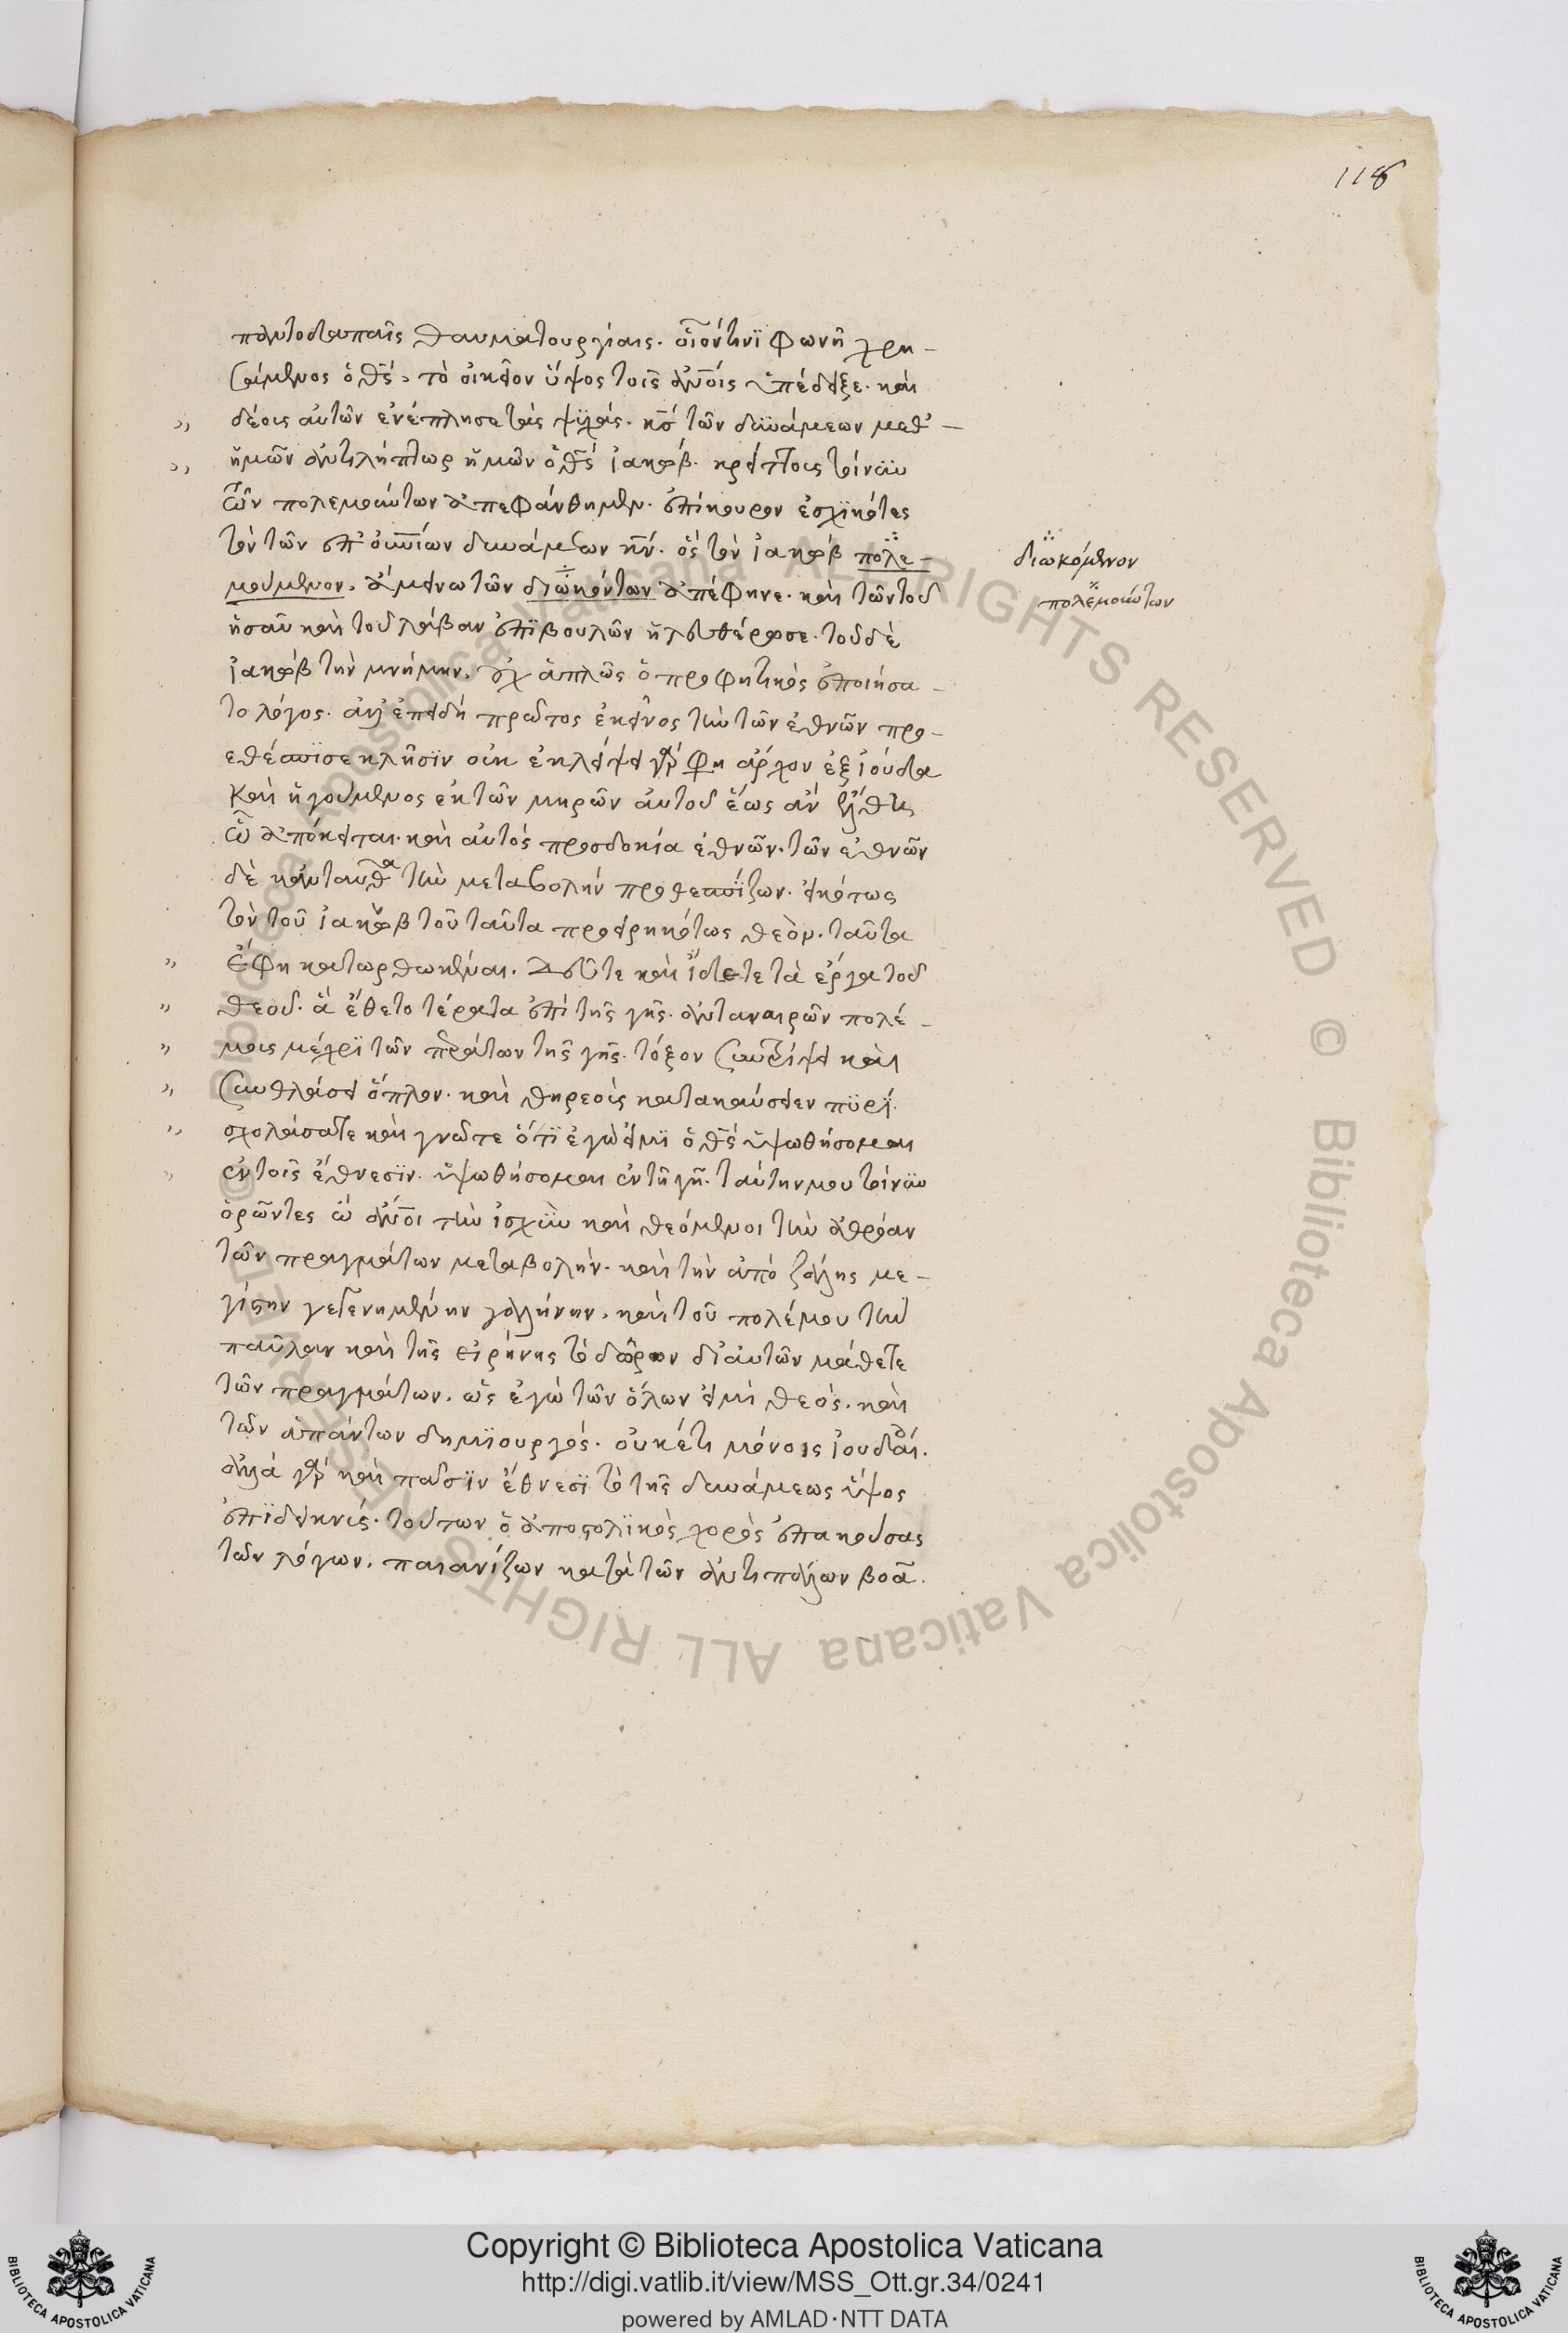 118
παντοδαπαῖς θαυματουργίαις. οἱονεί τινϊ φωνῆ χρη-
σάμενος ὁ θς, τὸ οἰκεῖον ὕψος τοῖς ἀνοις ὑπέδειξε. καὶ
δέους αὐτῶν ἐνέπλησε τὰς ψυχάς. κς τῶν δυνάμεων μεθ᾽-
ἡμῶν ἀντιλήπτωρ ἡμῶν ὁ θς ἰακώβ. κρείττους τοίνυν
τῶν πολεμούντων ἀπεφάνθημεν. ἐπίκουρον ἐσχϊκότες
τὸν τῶν ἐπουνίων δυνάμεων κν. ὃς τὸν ἰακὼβ πολε-
μούμενον, ἀμείνω τῶν διωκόντων ἀπέφηνε. καὶ τῶν τοῦ
ἡσαῦ καὶ τοῦ λάβαν ἐπϊβουλῶν ἠλευθέρωσε. τοῦ δὲ
ἰακὼβ τὴν μνήμην, οὐχ ἁπλῶς ὁ προφητικὸς ἐποιήσα-
το λόγος. ἀλλ᾽ ἐπειδὴ πρῶτος ἐκεῖνος τὴν τῶν ἐθνῶν προ-
εθέσπϊσε κλῆσϊν οὐκ ἐκλείψει γάρ φη ἄρχων ἐξ ἰούδα
καὶ ἡγούμενος ἐκ τῶν μηρῶν αὐτοῦ ἕως ἂν ἔλθη
ὧ ἀπόκειται. καὶ αὐτὸς προσδοκία ἐθνῶν. τῶν ἐθνῶν
δὲ κἀνταῦθα τὴν μεταβολὴν προθεσπίζων. εἰκότως
τὸν τοῦ ἰακὼβ τοῦ ταῦτα προειρηκότως θεὸν. ταῦτα
ἔφη κατωρθωκέναι. Δεῦτε καὶ ἴδετε τὰ ἔργα τοῦ
θεοῦ. ἃ ἔθετο τέρατα ἐπὶ τῆς γῆς. ἀνταναιρῶν πολέ-
μους μέχρϊ τῶν περάτων τῆς γῆς. τόξον συντρίψει καὶ
συνθλάσει ὅπλον. καὶ θηρεοὺς κατακαύσειεν πϋρί.
σχολάσατε καὶ γνῶτε ὅτϊ ἐγώ εἰμϊ ὁ θς ὑψωθήσομαι
ἐν τοῖς ἔθνεσϊν. ὑψωθήσομαι ἐν τῆ γῆ. ταύτην μου τοίνϋν
ὁρῶντες ὦ ἄνοι τὴν ἰσχϋν καὶ θεόμενοι τὴν ἀθρόαν
τῶν πραγμάτων μεταβολήν. καὶ τὴν ἀπὸ ζάλης με-
γίστην γεγενημένην γαλήνην. καὶ τοῦ πολέμου τὴν
παῦλαν καὶ τῆς εἰρήνης τὸ δῶρον δι᾽ αὐτῶν μάθετε
τῶν πραγμάτων. ὡς ἐγὼ τῶν ὅλων εἰμὶ θεός. καὶ
τῶν ἁπάντων δημϊουργός. οὐκέτι μόνοις ἰουδαί.
ἀλλὰ γὰρ καὶ πᾶσϊν ἔθνεσϊ τὸ τῆς δυνάμεως ὕψος
ἐπϊδεικνύς. τούτων ὁ ἀποστολϊκὸς χορὸς ἐπακούσας
τῶν λόγων. παιανίζων κατὰ τῶν ἀντιπάλων βοᾶ.
διωκόμενον
πολεμούντων
Copyright © Biblioteca Apostolica Vaticana
http://digi.vatlib.it/view/MSS_Ott.gr.34/0241
powered by AMLAD·NTT DATA
BIBLIOTECA APOSTOLICA VATICANA
BIBLIOTECA APOSTOLICA VATICANA
© Biblioteca Apostolica Vaticana ALL RIGHTS RESERVED © Biblioteca Apostolica Vaticana ALL RIGHTS RESERVED